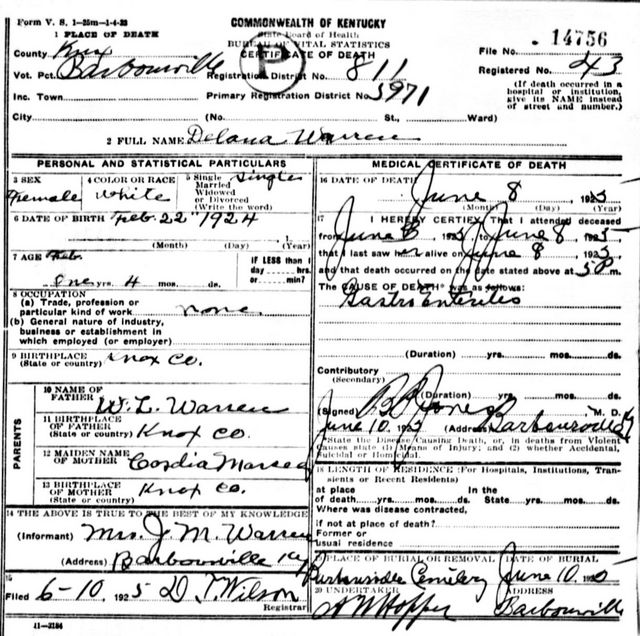 Form V. S. 1-25m-1-4-23
COMMONWEALTH OF KENTUCKY
State Board of Health
BUREAU OF VITAL STATISTICS
CERTIFICATE OF DEATH
P
1 PLACE OF DEATH
County Knox
File No. 14756
Vot. Pct. Barbourville Registration District No. 811 Registered No. 43
Inc. Town Primary Registration District No. 5971
(If death occurred in a hospital or institution, give its NAME instead of street and number.)
City (No. St., Ward)
2 FULL NAME Delana Warren
PERSONAL AND STATISTICAL PARTICULARS
3 SEX Female
4 COLOR OR RACE White
5 Single Married Widowed or Divorced (Write the word) Single
6 DATE OF BIRTH Feb 22 1924
(Month) (Day) (Year)
7 AGE Feb.
One yrs. 4 mos. ds.
IF LESS than 1 day hrs. or min?
8 OCCUPATION
(a) Trade, profession or particular kind of work none
(b) General nature of industry, business or establishment in which employed (or employer)
9 BIRTHPLACE (State or country) Knox Co.
PARENTS
10 NAME OF FATHER W. L. Warren
11 BIRTHPLACE OF FATHER (State or country) Knox Co
12 MAIDEN NAME OF MOTHER Cordia
13 BIRTHPLACE OF MOTHER (State or country) Knox Co
14 THE ABOVE IS TRUE TO THE BEST OF MY KNOWLEDGE
(Informant) Mrs. J. M. Warren
(Address) Barbourville Ky
15
Filed 6-10 1925 D. T. Wilson
Registrar
11-3184
MEDICAL CERTIFICATE OF DEATH
16 DATE OF DEATH June 8, 1925
(Month) (Day) (Year)
17 I HEREBY CERTIFY, That I attended deceased
from June 8, 1925, to June 8, 1925
that I last saw her alive on June 8, 1925
and that death occurred on the date stated above at 5 P m.
The CAUSE OF DEATH* was as follows:
Gastro Enteritis
(Duration) yrs. mos. ds.
Contributory
(Secondary)
(Duration) yrs. mos. ds.
(Signed) B Jones, M. D.
June 10, 1925 (Address) Barbourville Ky
*State the Disease Causing Death, or, in deaths from Violent Causes state (1) Means of Injury; and (2) whether Accidental, Suicidal or Homicidal.
18 LENGTH OF RESIDENCE (For Hospitals, Institutions, Transients or Recent Residents)
at place of death yrs. mos. ds. In the State yrs. mos. ds.
Where was disease contracted,
if not at place of death?
Former or usual residence
19 PLACE OF BURIAL OR REMOVAL DATE OF BURIAL
Barbourville Cemetery June 10, 1925
20 UNDERTAKER ADDRESS
A W Hopper Barbourville